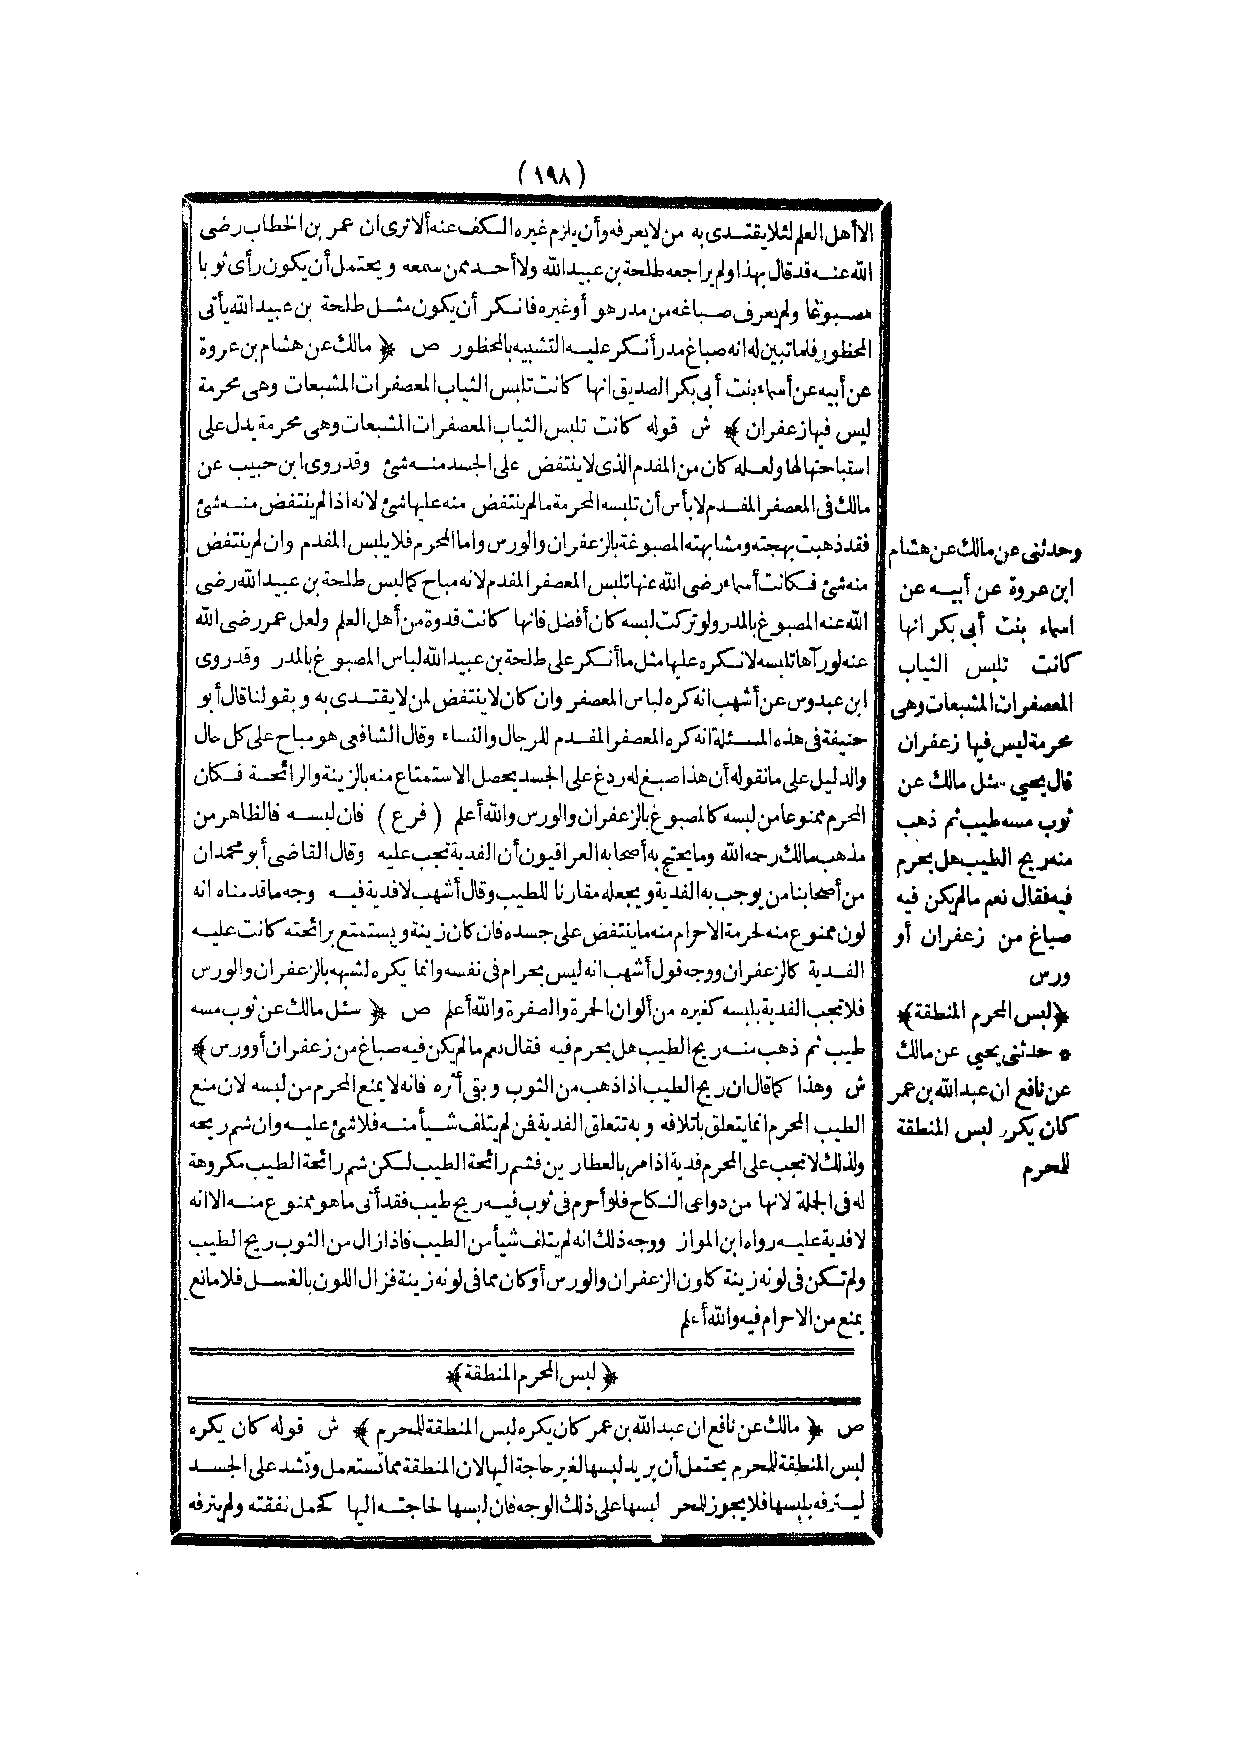 (١٩٨)
الا أهل العلم لئلا يقتدى به من لا يعرفه وأن يلزم غيره الكف عنه ألا ترى ان عمر بن الخطاب رضى
الله عنه قد قال بهذا ولم يراجعه طلحة بن عبيد الله ولا أحد ممن سمعه ويحتمل أن يكون رأى ثوبا
مصبوغا ولم يعرف صباغه من مدر هو أو غيره فانكر أن يكون مثل طلحة بن عبيد الله يأتى
المحظور فلما تبين له انه صباغ مدر أنكر عليه التشبيه بالمحظور ص ﴿ مالك عن هشام بن عروة
عن أبيه عن أسماء بنت أبى بكر الصديق انها كانت تلبس الثياب المعصفرات المشبعات وهى محرمة
ليس فيها زعفران ﴾ ش قوله كانت تلبس الثياب المعصفرات المشبعات وهى محرمة يدل على
استباحتها لها ولعله كان من المفدم الذى لا ينتفض على الجسد منه شئ وقد روى ابن حبيب عن
مالك فى المعصفر المفدم لا بأس أن تلبسه المحرمة مالم ينتفض منه عليها شئ لانه اذا لم ينتفض منه شئ
فقد ذهبت بهجته ومشابهته المصبوغة بالزعفران والورس واما المحرم فلا يلبس المفدم وان لم ينتفض
منه شئ فكانت أسماء رضى الله عنها تلبس المعصفر المفدم لانه مباح كما لبس طلحة بن عبيد الله رضى
الله عنه المصبوغ بالمدر ولو تركت لبسه كان أفضل فانها كانت قدوة من أهل العلم ولعل عمر رضى الله
عنه لو رآها تلبسه لانكره عليها مثل ما أنكر على طلحة بن عبيد الله لباس المصبوغ بالمدر وقد روى
ابن عبدوس عن أشهب انه كره لباس المعصفر وان كان لا ينتفض لمن لا يقتدى به وبقولنا قال أبو
حنيفة فى هذه المسئلة انه كره المعصفر المفدم للرجال والنساء وقال الشافعى هو مباح على كل حال
والدليل على ما نقوله أن هذا صبغ له ردغ على الجسد يحصل الاستمتاع منه بالزينة والرائحة فكان
المحرم ممنوعا من لبسه كالمصبوغ بالزعفران والورس والله أعلم (فرع) فان لبسه فالظاهر من
مذهب مالك رحمه الله وما يحتج به أصحابه العراقيون أن الفدية تجب عليه وقال القاضى أبو محمد ان
من أصحابنا من يوجب به الفدية ويجعله مقارنا للطيب وقال أشهب لا فدية فيه وجه ما قدمناه انه
لون ممنوع منه لحرمة الاحرام منه ما ينتفض على جسده فان كان زينة ويستمتع برائحته كانت عليه
الفدية كالزعفران ووجه قول أشهب انه ليس بحرام فى نفسه وانما يكره لشبهه بالزعفران والورس
فلا تجب الفدية بلبسه كغيره من ألوان الحمرة والصفرة والله أعلم ص ﴿ سئل مالك عن ثوب مسه
طيب ثم ذهب منه ريح الطيب هل يحرم فيه فقال نعم مالم يكن فيه صباغ من زعفران أو ورس ﴾
ش وهذا كما قال ان ريح الطيب اذا ذهب من الثوب وبقى أثره فانه لا يمنع المحرم من لبسه لان منع
الطيب المحرم انما يتعلق باتلافه وبه تتعلق الفدية فمن لم يتلف شيأ منه فلا شئ عليه وان شم ريحه
ولذلك لا تجب على المحرم فدية اذا مر بالعطارين فشم رائحة الطيب لكن شم رائحة الطيب مكروهة
له فى الجملة لانها من دواعى النكاح فلو أحرم فى ثوب فيه ريح طيب فقد أتى ما هو ممنوع منه الا انه
لا فدية عليه رواه ابن المواز ووجه ذلك انه لم يتلف شيأ من الطيب فاذا زال من الثوب ريح الطيب
ولم تكن فى لونه زينة كلون الزعفران والورس أو كان مما فى لونه زينة فزال اللون بالغسل فلا مانع
يمنع من الاحرام فيه والله أعلم
﴿ لبس المحرم المنطقة ﴾
ص ﴿ مالك عن نافع ان عبد الله بن عمر كان يكره لبس المنطقة للمحرم ﴾ ش قوله كان يكره
لبس المنطقة للمحرم يحتمل أن يريد لبسها لغير حاجة اليها لان المنطقة مما تستعمل وتشد على الجسد
ليترفه بلبسها فلا يجوز للمحر لبسها على ذلك الوجه فان لبسها لحاجته اليها كحمل نفقته ولم يترفه
وحدثنى عن مالك عن هشام
ابن عروة عن أبيه عن
اسماء بنت أبى بكر انها
كانت تلبس الثياب
المعصفرات المشبعات وهى
محرمة ليس فيها زعفران
قال يحيى سئل مالك عن
ثوب مسه طيب ثم ذهب
منه ريح الطيب هل يحرم
فيه فقال نعم مالم يكن فيه
صباغ من زعفران أو
ورس
﴿لبس المحرم المنطقة﴾
* حدثنى يحيى عن مالك
عن نافع ان عبد الله بن عمر
كان يكره لبس المنطقة
للمحرم